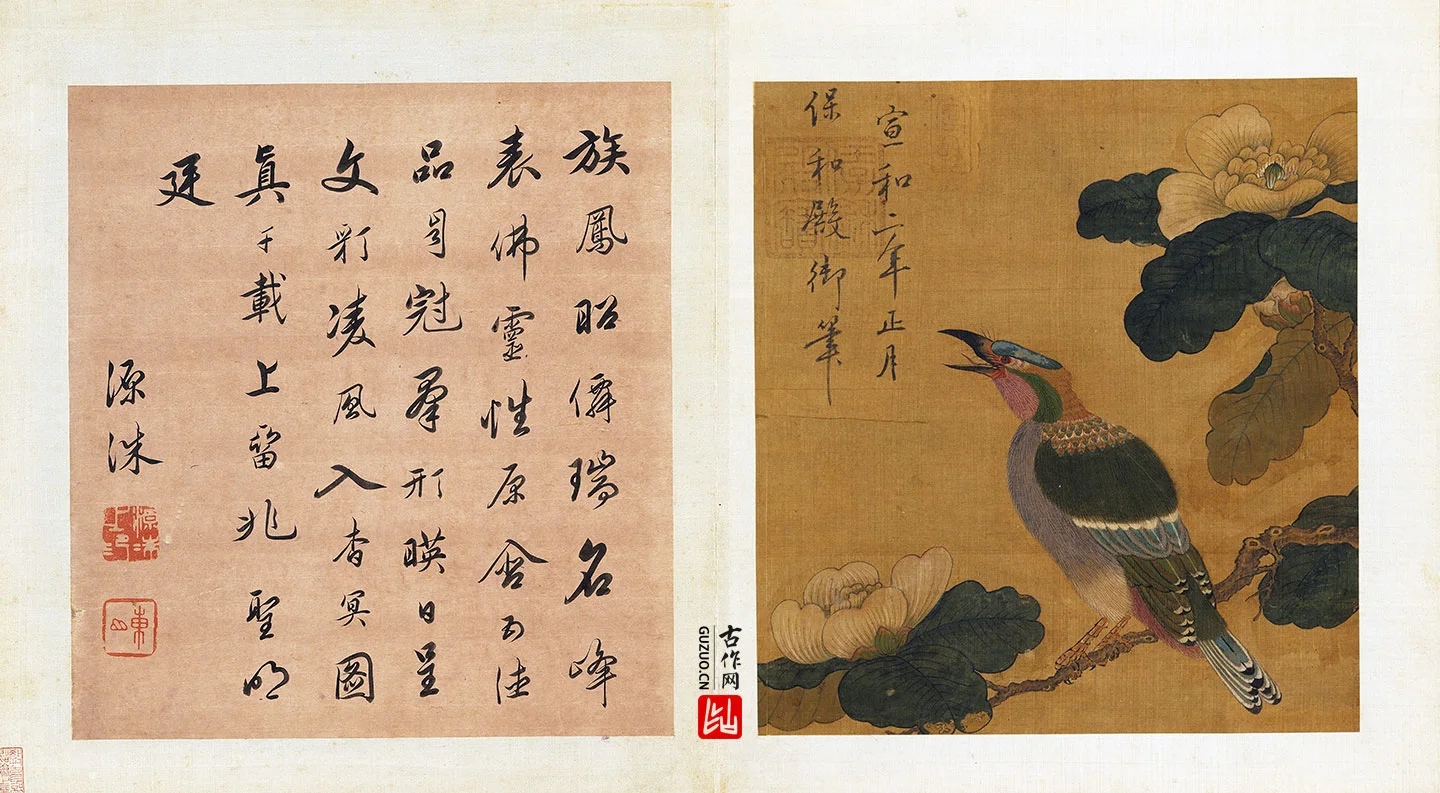 宣和二年正月
保和殿御筆
族鳳昭僊瑞名峰
表佛靈性原含五德
品自冠羣形暎日呈
文彩凌風入杳冥圖
真千載上留兆聖明
廷
源洙
東山
古作网
GUZUO.CN